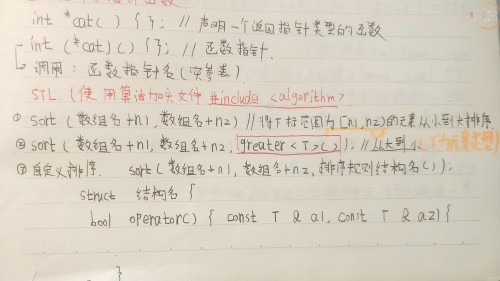 int *cat( ) { }; // 声明一个返回指针类型的函数
int (*cat)( ) { }; // 函数指针.
调用: 函数指针名(实参表)
STL. (使用算法加头文件 #include <algorithm>
① sort (数组名+n1, 数组名+n2) // 将下标范围为[n1, n2)的元素从小到大排序
② sort (数组名+n1, 数组名+n2, greater<T>( ) ); // 从大到小 (T为元素类型)
③ 自定义排序. sort(数组名+n1, 数组名+n2, 排序规则结构名( ) );
struct 结构名 {
bool operator( ) ( const T & a1, const T & a2) {
}